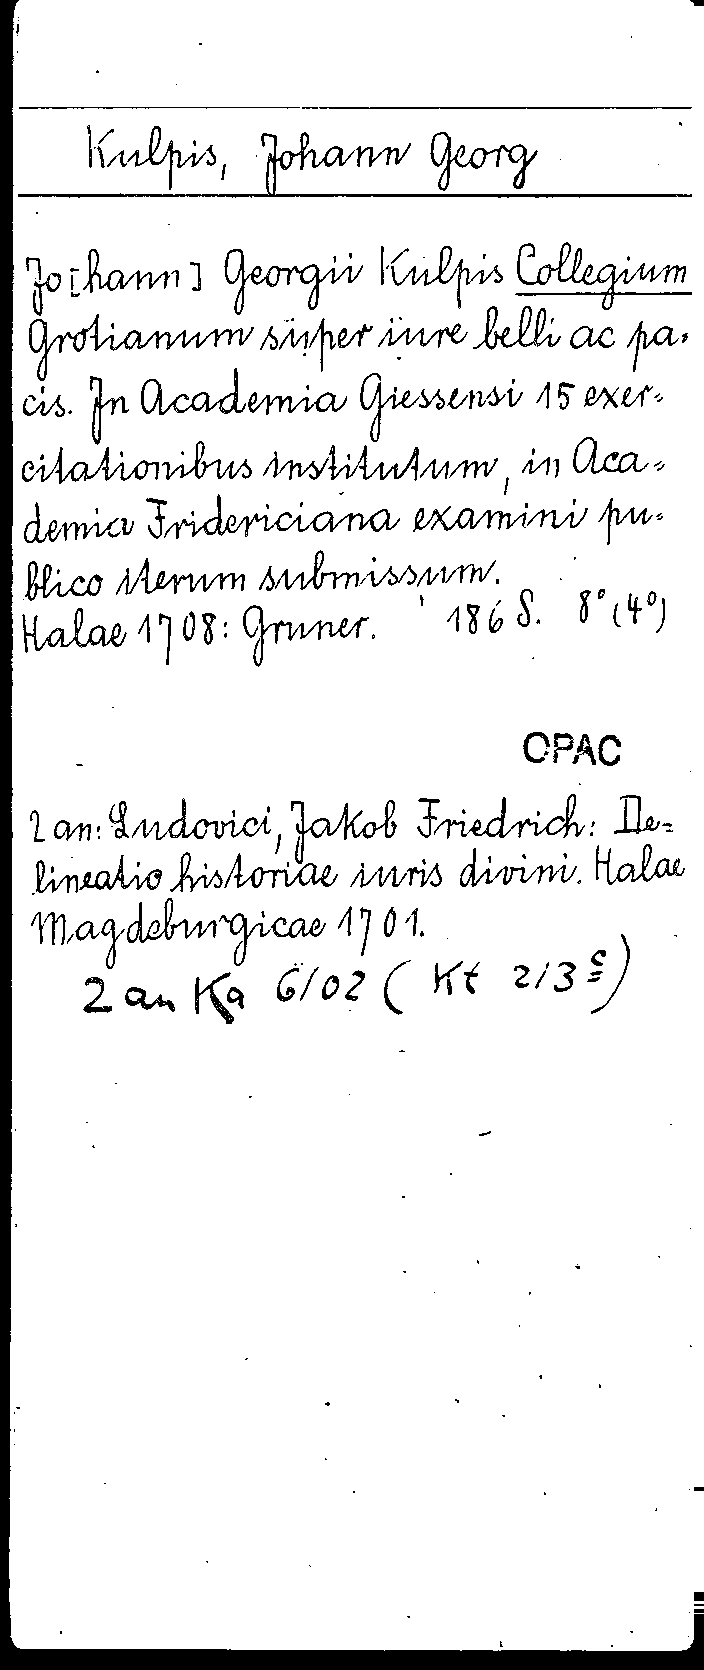 Kulpis, Johann Georg
Jo[hann] Georgii Kulpis Collegium
Grotianum super iure belli ac pa-
cis. In Academia Giessensi 15 exer-
citationibus institutum, in Aca-
demia Fridericiana examini pu-
blico iterum submissum.
Halae 1708: Gruner. 186 S. 8° (4°)
OPAC
2 an: Ludovici, Jakob Friedrich: De-
lineatio historiae iuris divini. Halae
Magdeburgicae 1701.
2 an Ka 6/02 (Kt 2/3 c)